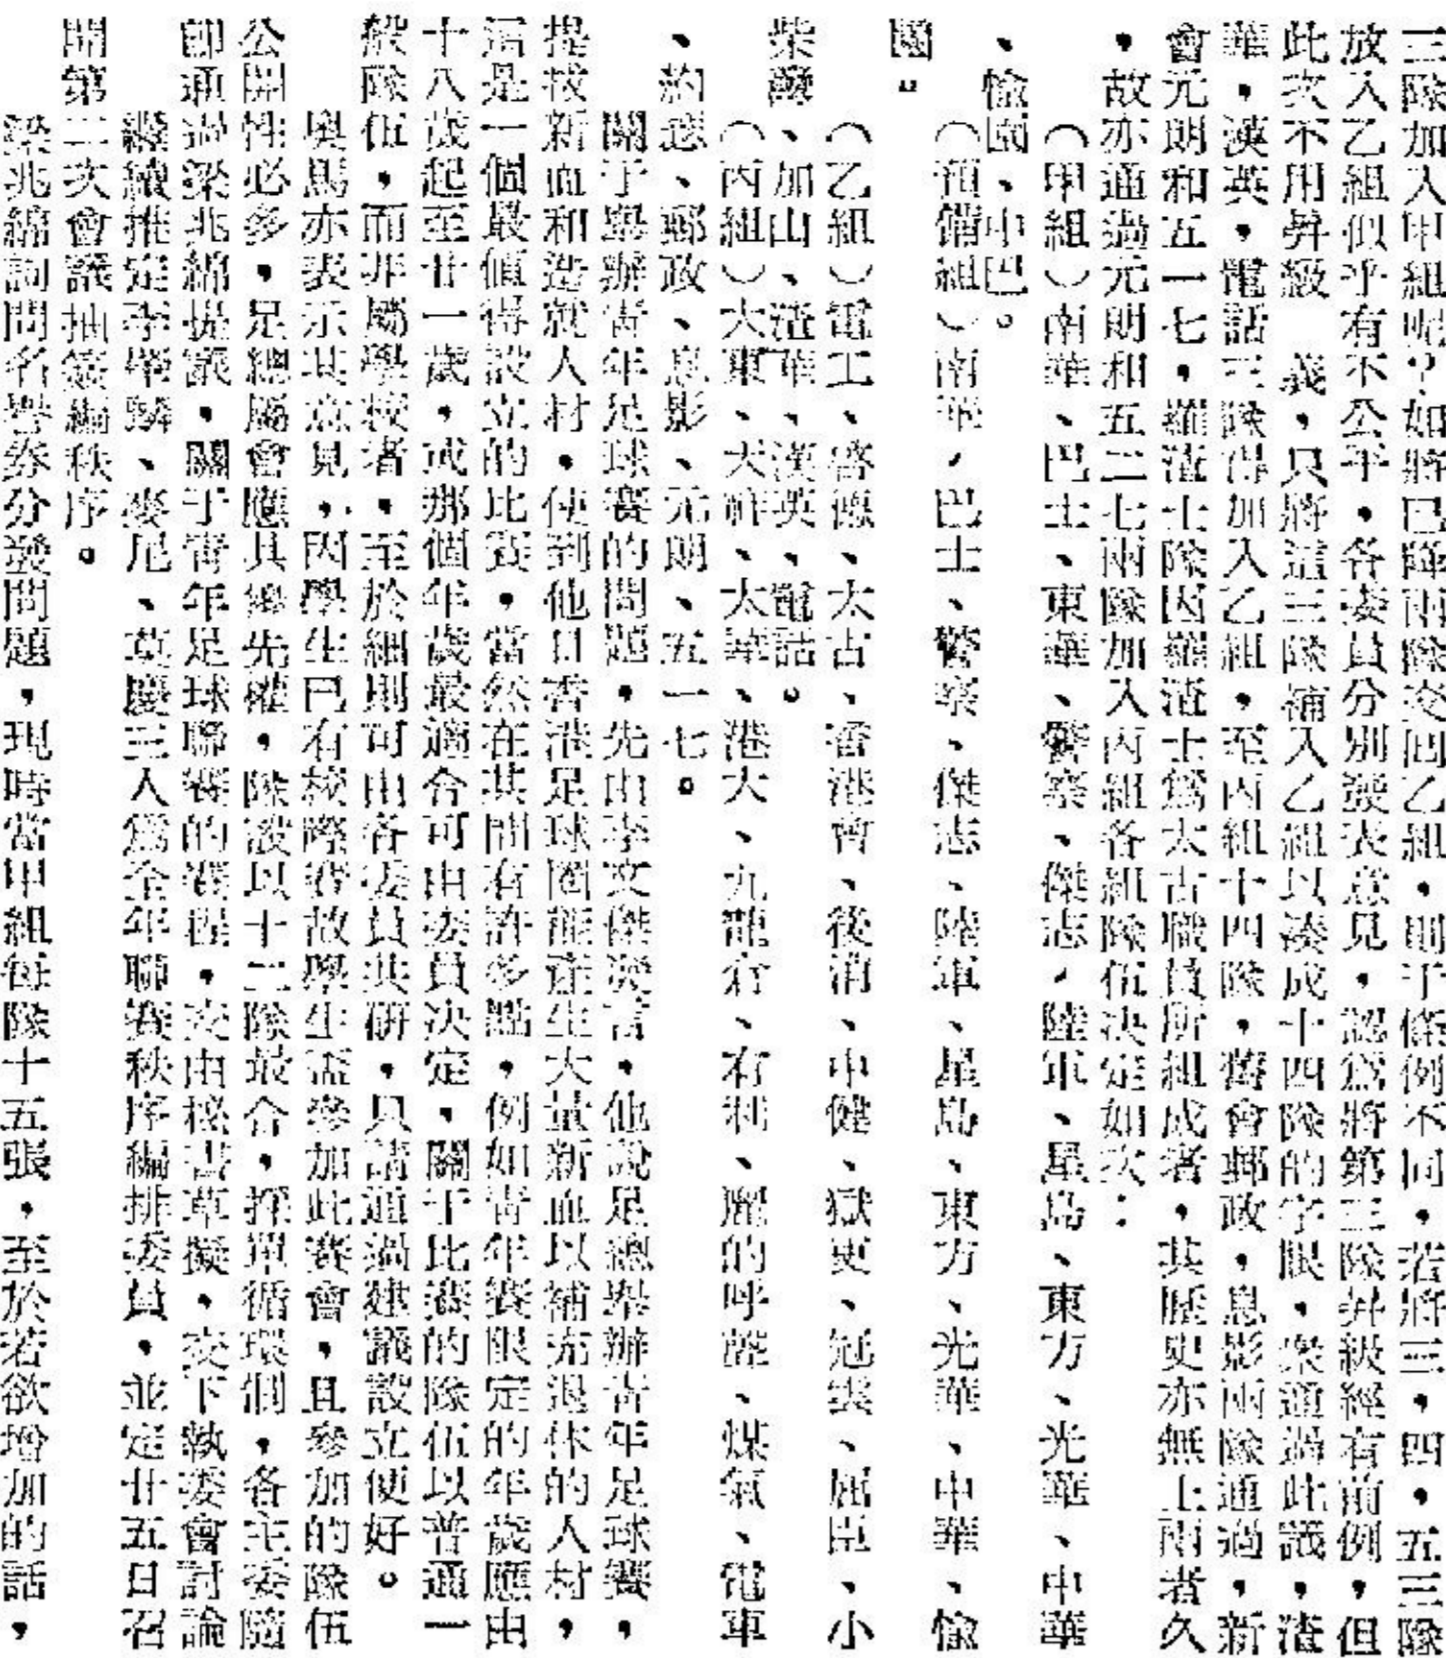 三隊加入甲組呢？如將已降兩隊交回乙組，則于條例不同，若將三，四，五三隊
放入乙組似乎有不公平，各委員分別發表意見，認爲將第三隊昇級經有前例，但
此次不用昇級　義，只將這三隊補入乙組以湊成十四隊的字眼，衆通過此議，渣
華，漢英，電話三隊得加入乙組，至丙組十四隊，舊會郵政，息影兩隊通過，新
會元朗和五一七，羅渣士隊因羅渣士爲太古職員所組成者，其歷史亦無上兩者久
，故亦通過元朗和五二七兩隊加入丙組各組隊伍决定如次：
（甲組）南華、巴士、東華、警察、傑志，陸軍、星島、東方、光華、中華
、愉園、中巴。
（預備組）南華，巴士、警察、傑志、陸軍、星島、東方、光華、中華、愉
園。
（乙組）電工、啓德、太古、香港會、後消、中健、獄吏、冠雲、屈臣、小
柴灣、加山、渣華、漢英、電話。
（丙組）大東、大祥、太華、港大、九龍倉、有利、麗的呼聲、煤氣、電車
、約瑟、郵政、息影、元朗、五一七。
關于舉辦青年足球賽的問題，先由李文傑發言，他說足總舉辦青年足球賽，
提拔新血和造就人材，使到他日香港足球圈能產生大量新血以補充退休的人材，
這是一個最值得設立的比賽，當然在其間有許多點，例如青年賽限定的年歲應由
十八歲起至廿一歲，或那個年歲最適合可由委員决定，關于比賽的隊伍以普通一
般隊伍，而非屬學校者，至於細則可由各委員共研，只請通過建議設立便好。
奧馬亦表示其意見，因學生已有校際賽故學生盃參加此賽會，且參加的隊伍
公開性必多，足總屬會應具優先權，隊數以十二隊最合，採單循環制，各主委隨
即通過梁兆綿提議，關于青年足球聯賽的賽程，交由秘書草擬，交下執委會討論
繼續推定李舉麟、麥尼、莫慶三人爲全年聯賽秩序編排委員，並定廿五日召
開第二次會議抽簽編秩序。
梁兆綿詢問名譽券分發問題，現時當甲組每隊十五張，至於若欲增加的話，